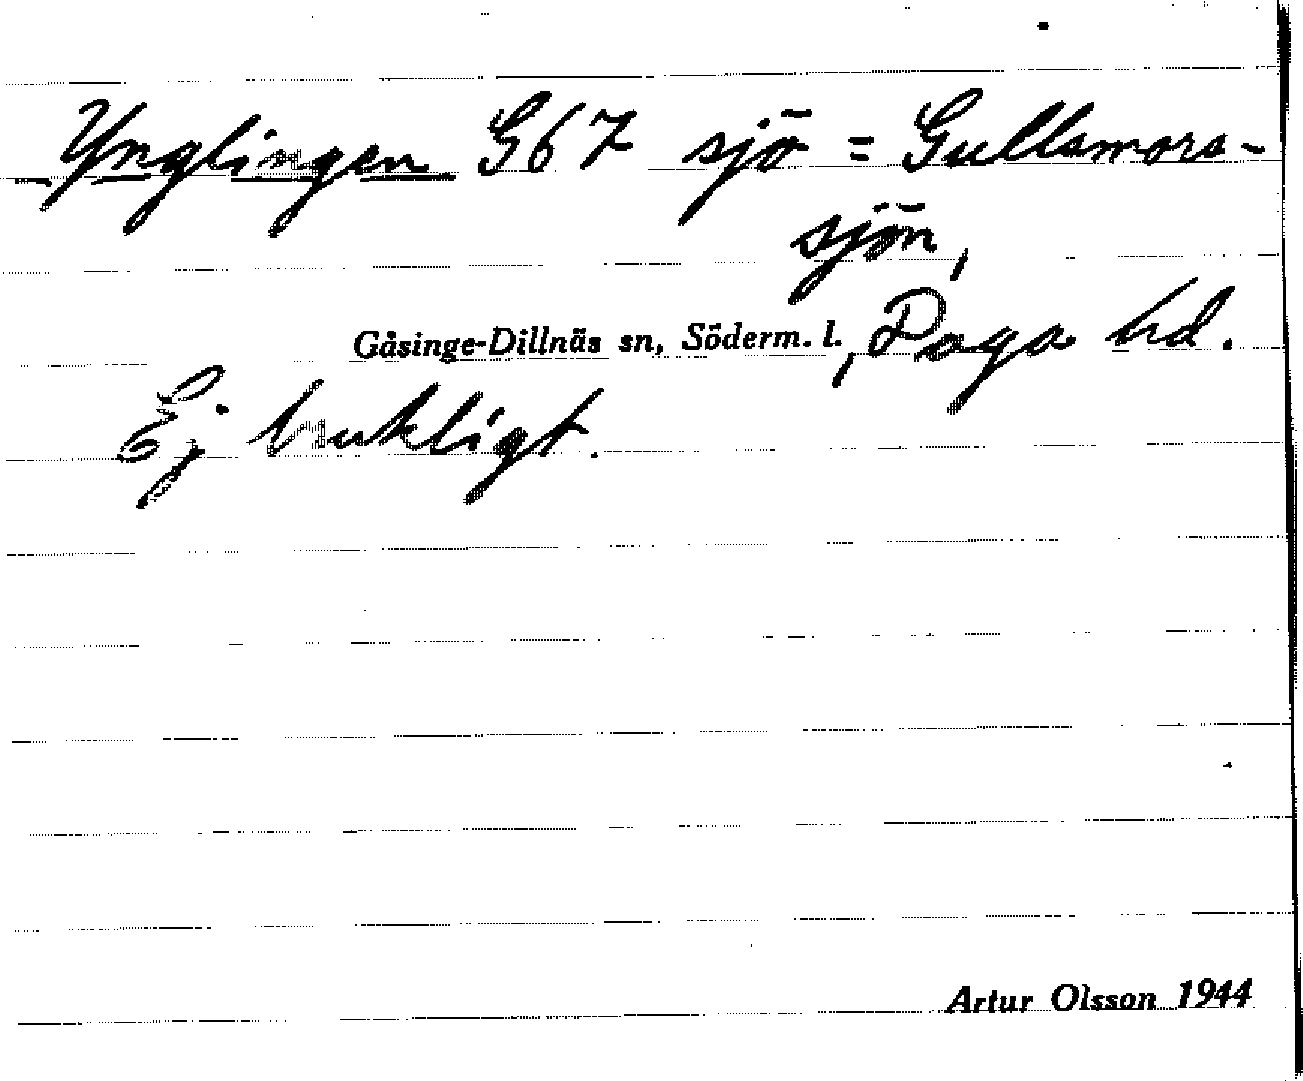 Ynglingen G67 sjö = Gullsmora-
sjön,
Gåsinge-Dillnäs sn, Söderm. l., Daga hd.
Ej brukligt.
Artur Olsson 1944